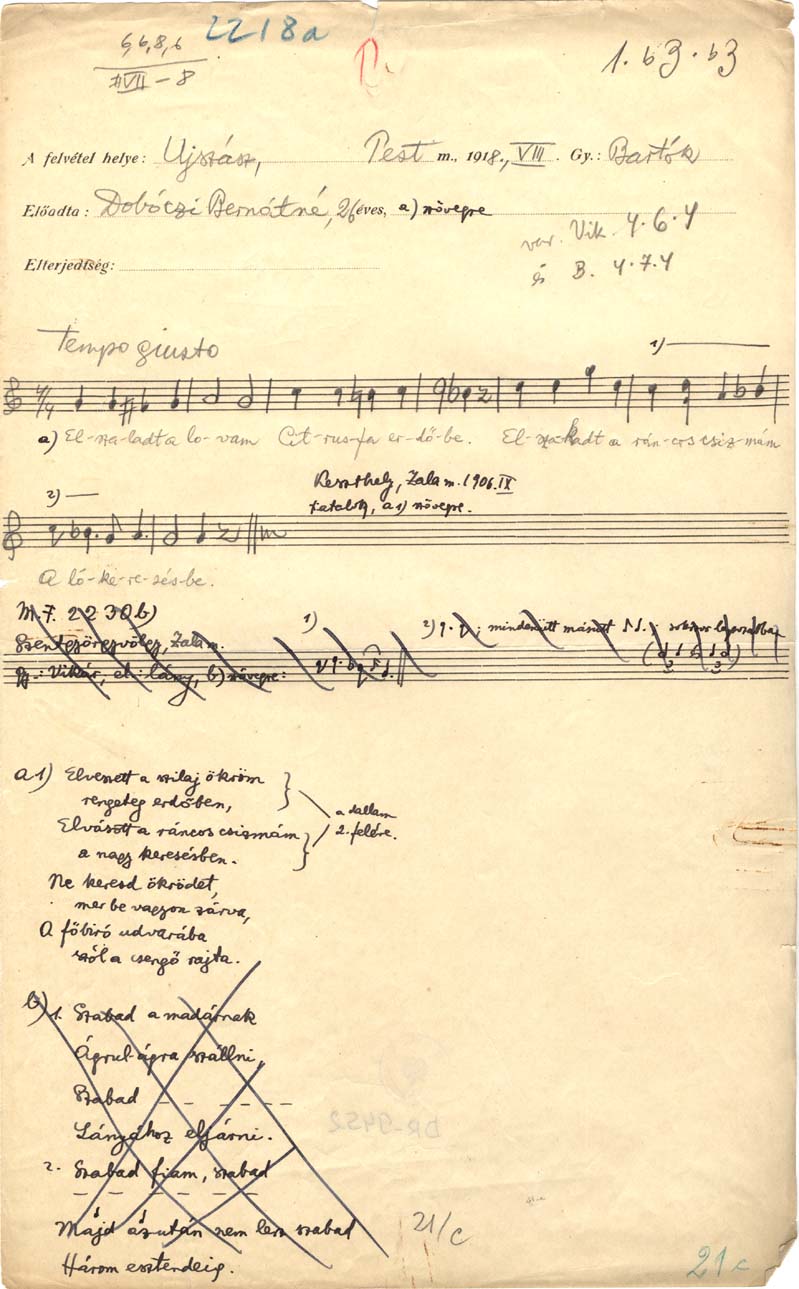 6,6,8,6
2218a
#VII – 8
1. b3. b3
A felvétel helye: Ujszász, Pest m., 1918., VIII. Gy.: Bartók
Előadta: Dobóczi Bernátné, 26 éves, a) szövegre
var. Vik. 4.6.4
Elterjedtség:
és B. 4.7.4
Tempo giusto
1)
a) El-sza-ladt a lo-vam Cit-rus-fa er-dő-be. El-sza-kadt a rán-cos csiz-mám
2)
Keszthely, Zala m. 1906. IX
fiatalok, a1) szövegre.
A ló-ke-re-sés-be.
M.F. 2230b)
1)
2) mindenütt másutt
Szentgyörgyvölgy, Zala m.
gy.: Vikár, el.: lány, b) szövegre:
a1) Elveszett a szilaj ökröm
rengeteg erdőben,
a dallam
Elvásott a ráncos csizmám
2. felére.
a nagy keresésben.
Ne keresd ökrödet,
mer be vagyon zárva,
A főbiró udvarába
szól a csengő rajta.
b) 1. Szabad a madárnek
Ágrul-ágra szállni,
Szabad – – – – –
Lányához eljárni.
2. Szabad fiam, szabad
– – – – – –
Májd ázután nem lesz szabad
Három esztendeig.
21/c
DR-9452
21c